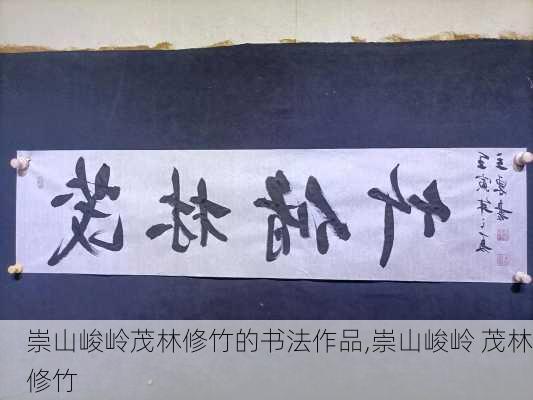 茂林修竹
崇山峻岭茂林修竹的书法作品,崇山峻岭 茂林
修竹